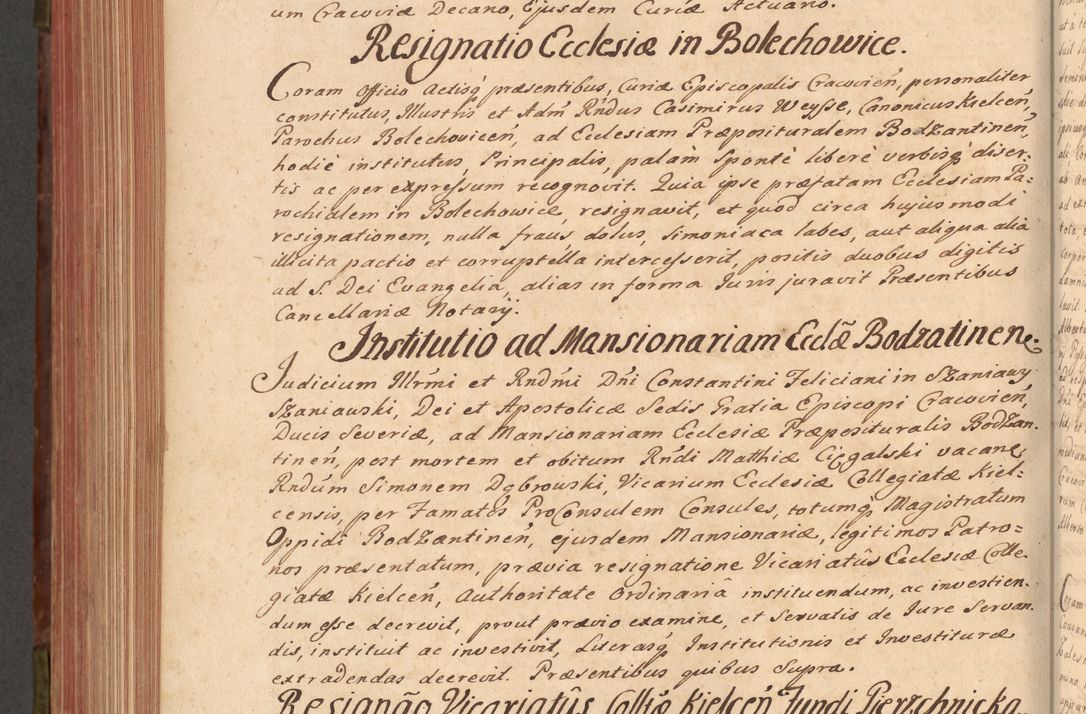 um Cracoviæ Decano, Ejusdem Curiæ Actuario.
Resignatio Ecclesiæ in Bolechowice.
Coram Officio Actisq́ præsentibus, Curiæ Episcopalis Cracovien̄, personaliter
constitutus, Illustris et Adm̄ R̄ndus Casimirus Weysse, Canonicus Kielcen̄,
Parochus Bolechovicen̄, ad Ecclesiam Præposituralem Bodzantinen̄,
hodie institutus, Principalis, palam sponte libere verbisq́ diser-
tis ac per expressum recognovit. Quia ipse præfatam Ecclesiam Pa=
rochialem in Bolechowice, resignavit, et quod circa hujusmodi
resignationem, nulla fraus, dolus, simoniaca labes, aut aliqua alia
illicita pactio et corruptella intercesserit, positis duobus digitis
ad S. Dei Evangelia, alias in forma Juris juravit Præsentibus
Cancellariæ Notarij.
Institutio ad Mansionariam Eccl̃æ Bodzatinen.
Judicium Illr̄mi et R̄ndmi Dn̄i Constantini Feliciani in Szaniawy
Szaniawski, Dei et Apostolicæ Sedis Gratia Episcopi Cracovien̄,
Ducis Severiæ, ad Mansionariam Ecclesiæ Præposituralis Bodzan-
tinen̄, post mortem et obitum R̄ndi Matthiæ Cięgalski vacane,
R̄ndum Simonem Dąbrowski, Vicarium Ecclesiæ Collegiatæ Kiel-
censis, per Famatos ProConsulem Consules, totumq́ Magistratum
Oppidi Bodzantinen̄, ejusdem Mansionariæ, legitimos Patro=
nos præsentatum, prævia resignatione Vicariatûs Ecclesiæ Colle-
giatæ Kielcen̄, Authoritate Ordinariâ instituendum, ac investien-
dum esse decrevit, prout prævio examine, et Servatis de Jure Servan-
dis, instituit ac investivit, Literasq́ Institutionis et Investituræ
extradendas decrevit. Præsentibus quibus Supra.
Resignão Vicariatûs Coll̃æ Kielcen̄ Fundi Pierzchnicka.